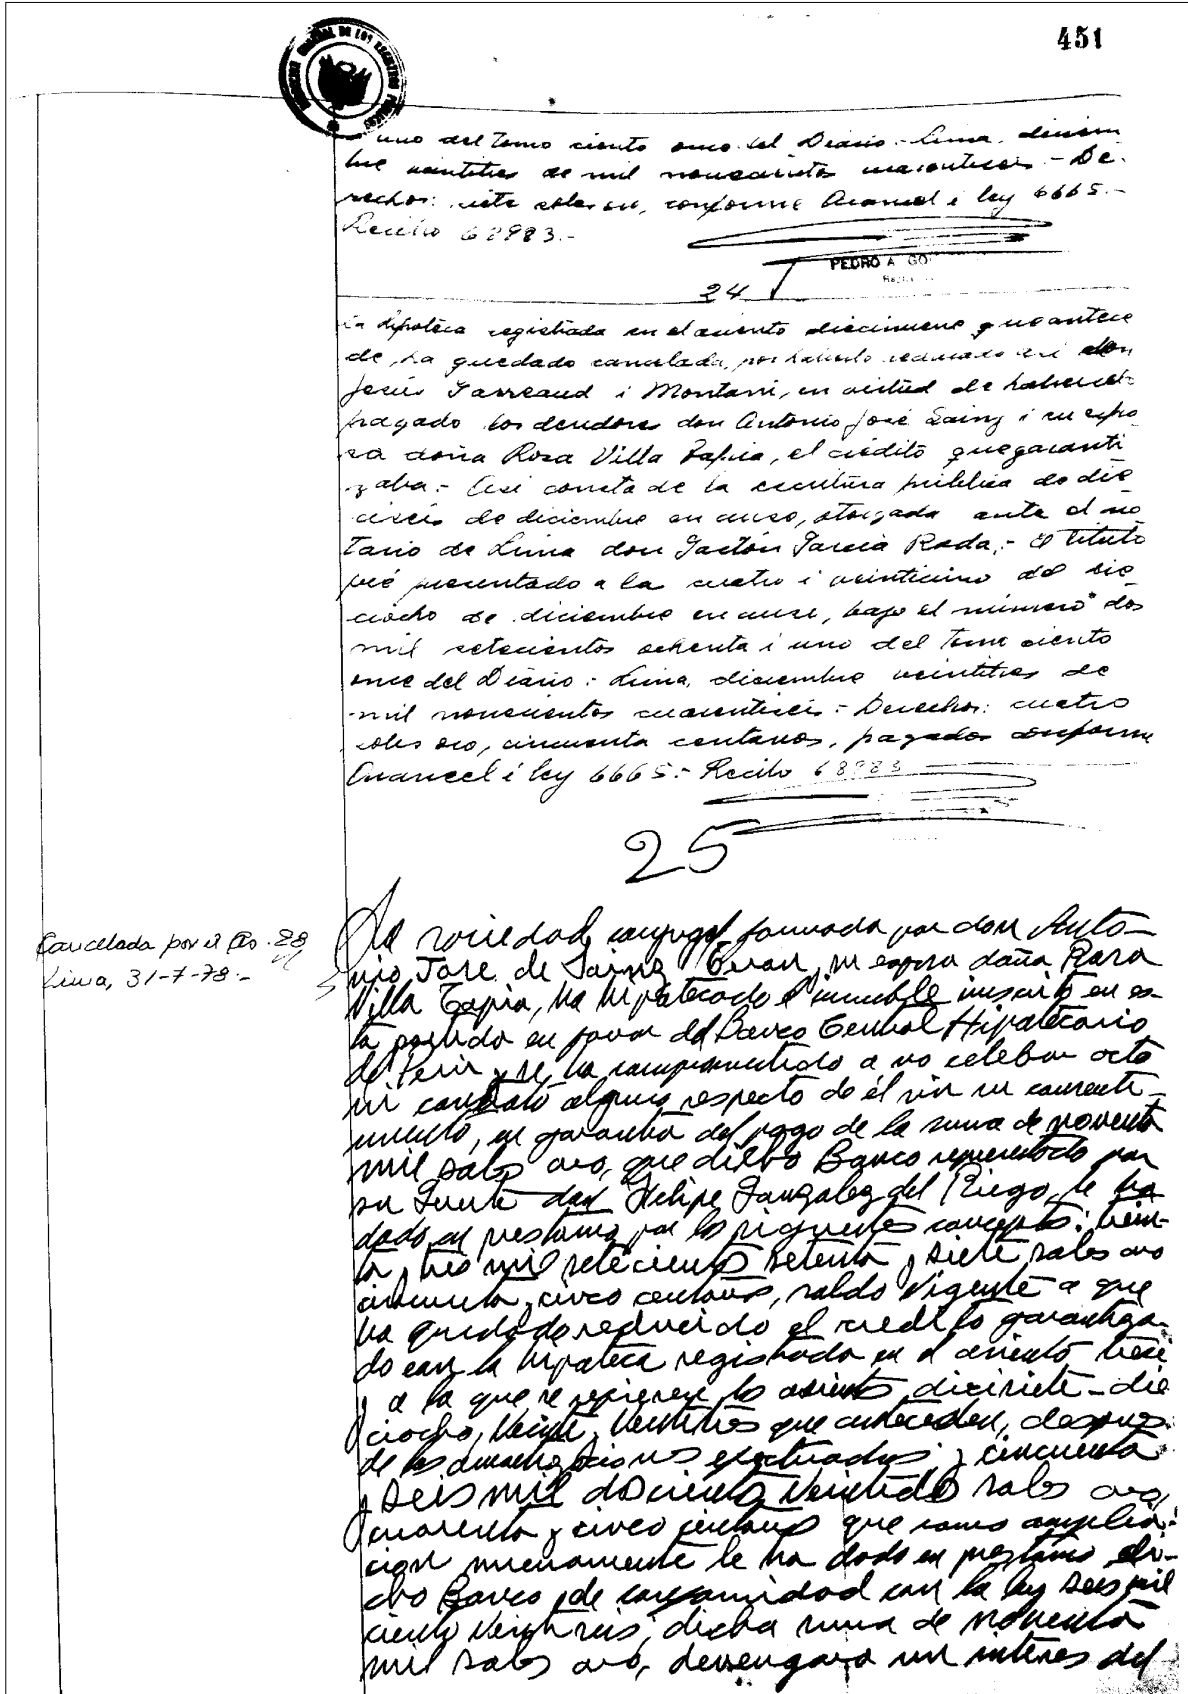 451
uno del Tomo ciento once del Diario.- Lima, diciem
bre veintitres de mil novecientos cuarentiseis.- De-
rechos: siete soles oro, conforme Arancel i ley 6665.-
Recibo 68983.-
PEDRO A. GO
24
La hipoteca registrada en el asiento diecinueve que antece
de, ha quedado cancelada, por haberlo declarado así don
Jesús Tarreaud i Montani, en virtud de haberle
pagado los deudores don Antonio José Sainz i su espo
sa doña Rosa Villa Tapia, el crédito que garanti
zaba.- Así consta de la escritura pública de die
ciseis de diciembre en curso, otorgada ante el no
tario de Lima don Gastón García Rada.- El título
fué presentado a la cuatro i veinticinco del die
ciocho de diciembre en curso, bajo el número dos
mil setecientos ochenta i uno del tomo ciento
once del Diario.- Lima, diciembre veintitres de
mil novecientos cuarentiseis.- Derechos: cuatro
soles oro, cincuenta centavos, pagados conforme
Arancel i ley 6665.- Recibo 68983
25
Cancelada por el As. 28
Lima, 31-7-78.-
La sociedad conyugal formada por don Anto-
nio José de Sainz y su esposa doña Rosa
Villa Tapia, ha hipotecado el inmueble inscrito en es-
ta partida en favor del Banco Central Hipotecario
del Perú y se ha comprometido a no celebrar acto
ni contrato alguno respecto de él sin su consenti-
miento, en garantía del pago de la suma de noventa
mil soles oro, que dicho Banco representado por
su Gerente don Felipe Gonzalez del Riego, le ha
dado en prestamo por los siguientes conceptos: trein-
ta y tres mil setecientos setenta y siete soles oro
cincuenta y cinco centavos, saldo vigente a que
ha quedado reducido el credito garantiza-
do con la hipoteca registrada en el asiento trece
y a la que se refieren los asientos diecisiete - die
ciocho, veinte, veintitres que anteceden, despues
de las amortizaciones efectuadas; y cincuenta
y seis mil doscientos veintidos soles oro,
cuarenta y cinco centavos que como amplia-
cion nuevamente le ha dado en prestamo di-
cho Banco, de conformidad con la ley seis mil
ciento veintiseis; dicha suma de noventa
mil soles oro, devengara un interes del